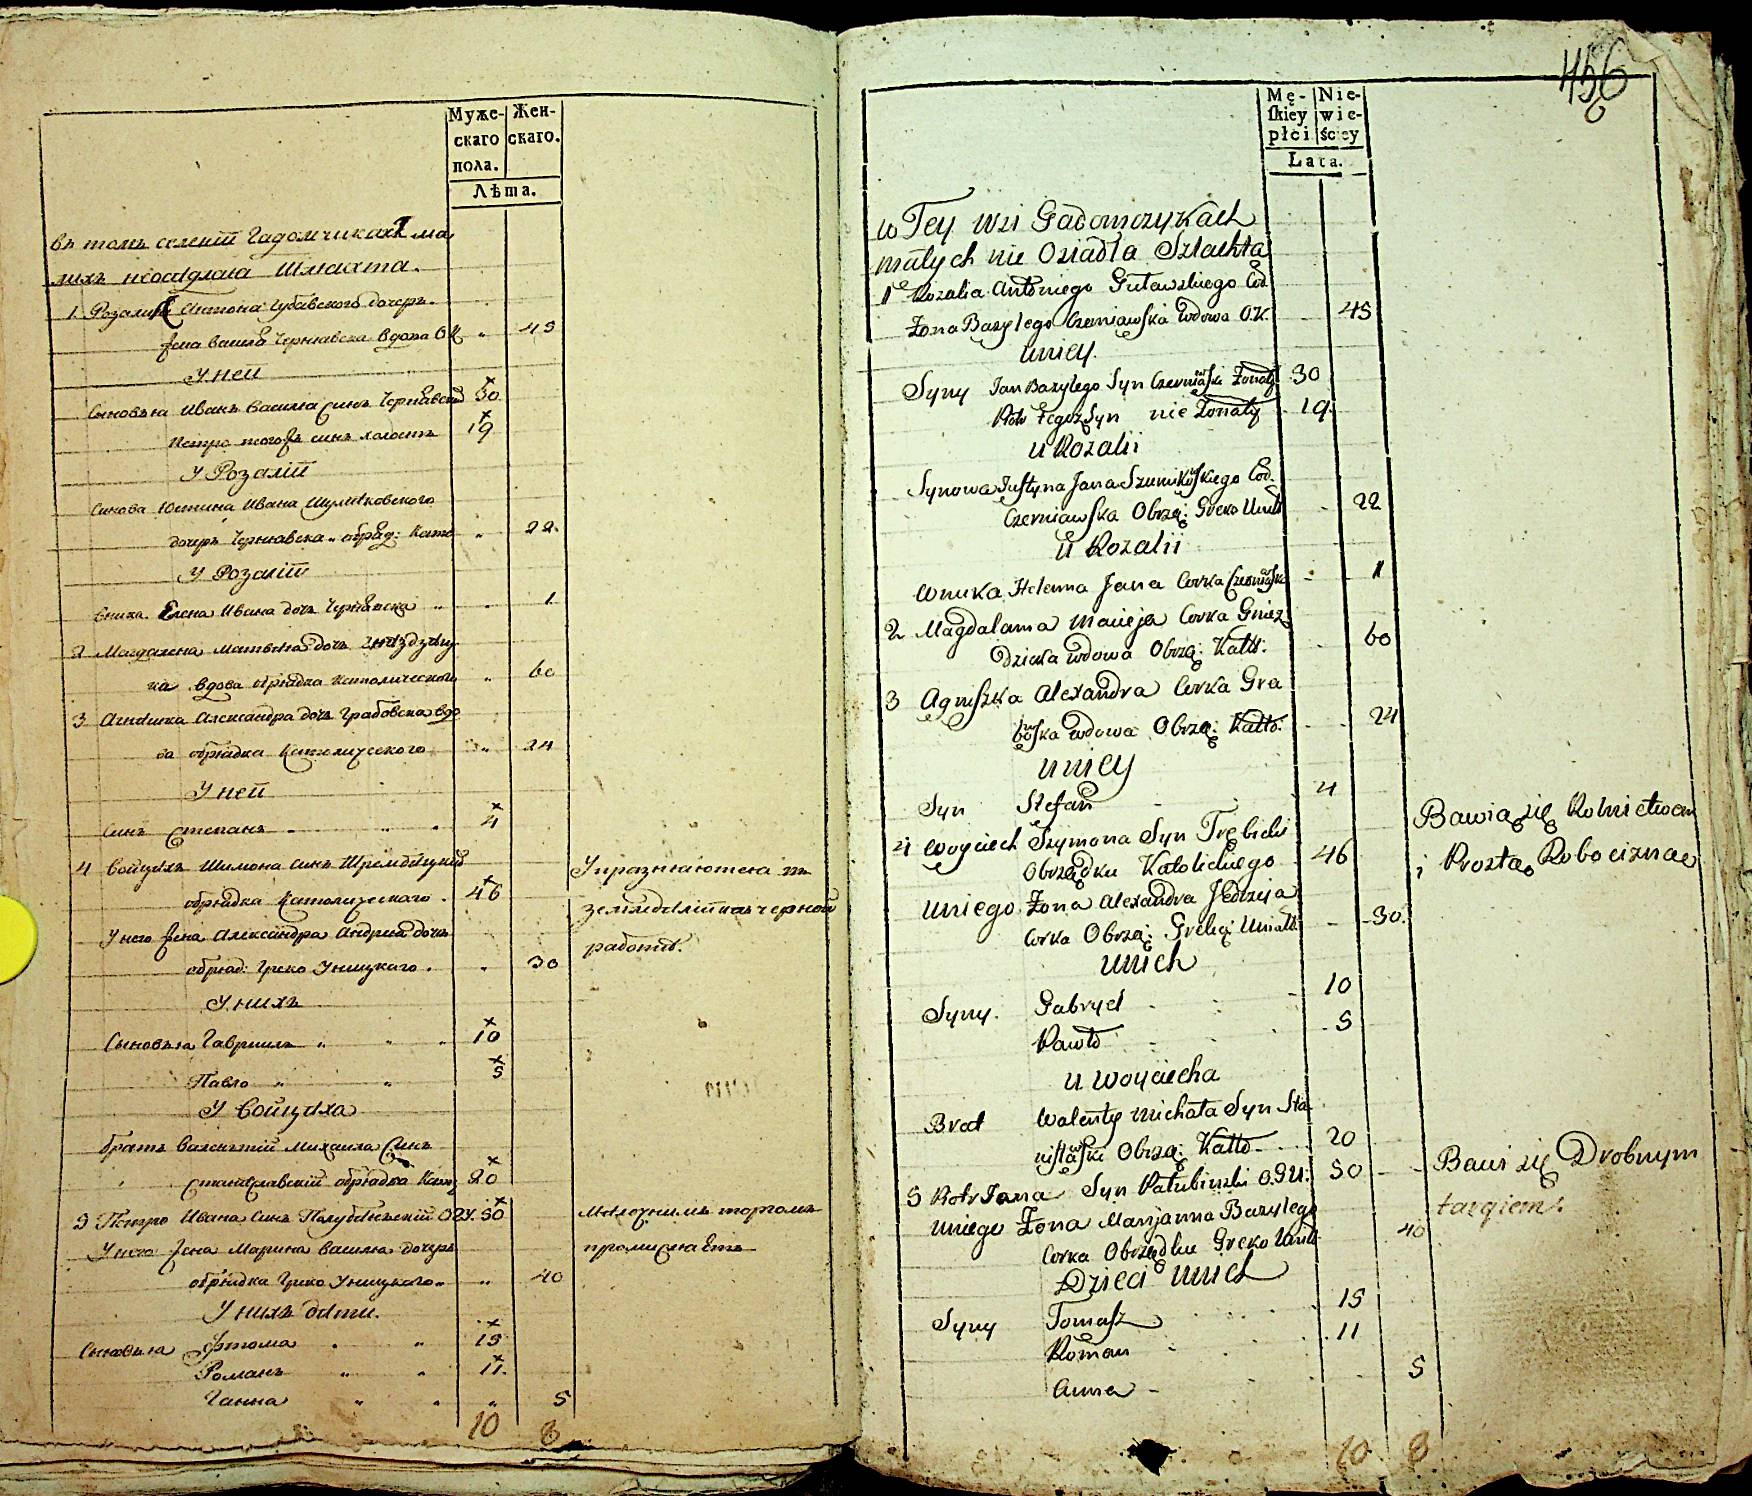 Муже-
скаго
пола.
Жен-
скаго.
Лѣта.
въ томъ селенїи Гадомчикахъ ма
лихъ неоседлая Шляхта.
1 Розалия Антона Гутавского дочеръ.
жена Василя Чернявска вдова О К „ 45
У ней
Сыновья Иванъ Василя синъ Чернявский 30
Петро тогожъ синъ холостъ 19
У Розалїи
Синова Юстина Ивана Шумиковского
дочеръ Чернявска „ обряд: Като „ 22.
У Розалїи
внука Елена Ивана дочъ Чернявска „ „ 1
2 Магдалена Матвея дочъ Гнездзец
ка вдова обрядка католического „ 60
3 Агнешка Александра дочъ Грабовска вдо
ва обрядка Католического „ 24
У ней
Синъ Степанъ „ „ 4
4 Войцехъ Шимона синъ Трембецкий
обрядка Католического. 46
У него жена Александра Андрея дочъ
обряд: Греко Уницкаго. „ 30
У нихъ
Сыновья Гавриилъ „ „ „ 10
Павло „ „ 5
У Войцеха
братъ Валентий Михаила Синъ
Станиславский обрядка Като 20
5 Петро Ивана Синъ Полубинский О Г У. 50
У него жена Марина Василя дочеръ
обрядка Греко Уницкого „ „ 40
У нихъ дети.
Сыновья Фтома „ 15
Романъ „ „ 11.
Ганна „ „ „ 5
10 8
Упражняются въ
земледелїи и въ черной
работе.
Мелочнимъ торгомъ
промисляетъ
456
6
Mę-
skiey
płci
Nie-
wie-
ściey
Lata.
w Tey wsi Gadomczykach
małych nie Osiadła Szlachta
1 Rozalia Antoniego Gutawskiego Cod.
Żona Bazylego Czerniawska wdowa O.K. 45
uniey.
Syny Jan Bazylego Syn Czerniawski Żonaty 30
Piotr Tegoż Syn nie Żonaty 19.
u Rozalii
Synowa Justyna Jana Szumikowskiego Cod.
Czerniawska Obrzą: Greko Unit 22
u Rozalii
wnuka Helenna Jana Corka Czerniawska 1
2 Magdalama Macieja Corka Gniez
dziecka wdowa Obrzą: Katto. 60
3 Agniszka Alexandra Corka Gra
bowska wdowa Obrzą: Katto. 24
uniey
Syn Stefan 4
4 Woyciech Szymona Syn Trębicki
Obrządku Katolickiego 46
uniego Żona Alexandra Jędrzeja
Corka Obrzą: Greką: Uniatt. 30.
unich
Syny. Gabryel 10
Pawło 5
u Woyciecha
Brat Walenty Michała Syn Sta
nisławski Obrzą: Katto 20
5 Piotr Jana Syn Połubinski O.G.U. 50
uniego Żona Maryanna Bazylego
Corka Obrządku Greko Unit 40
Dzieci unich
Syny Tomasz 15
Roman 11
Anna 5
10 8
Bawią się Rolnictwem
i Prostą Robocizną
Bawi się Drobnym
targiem.